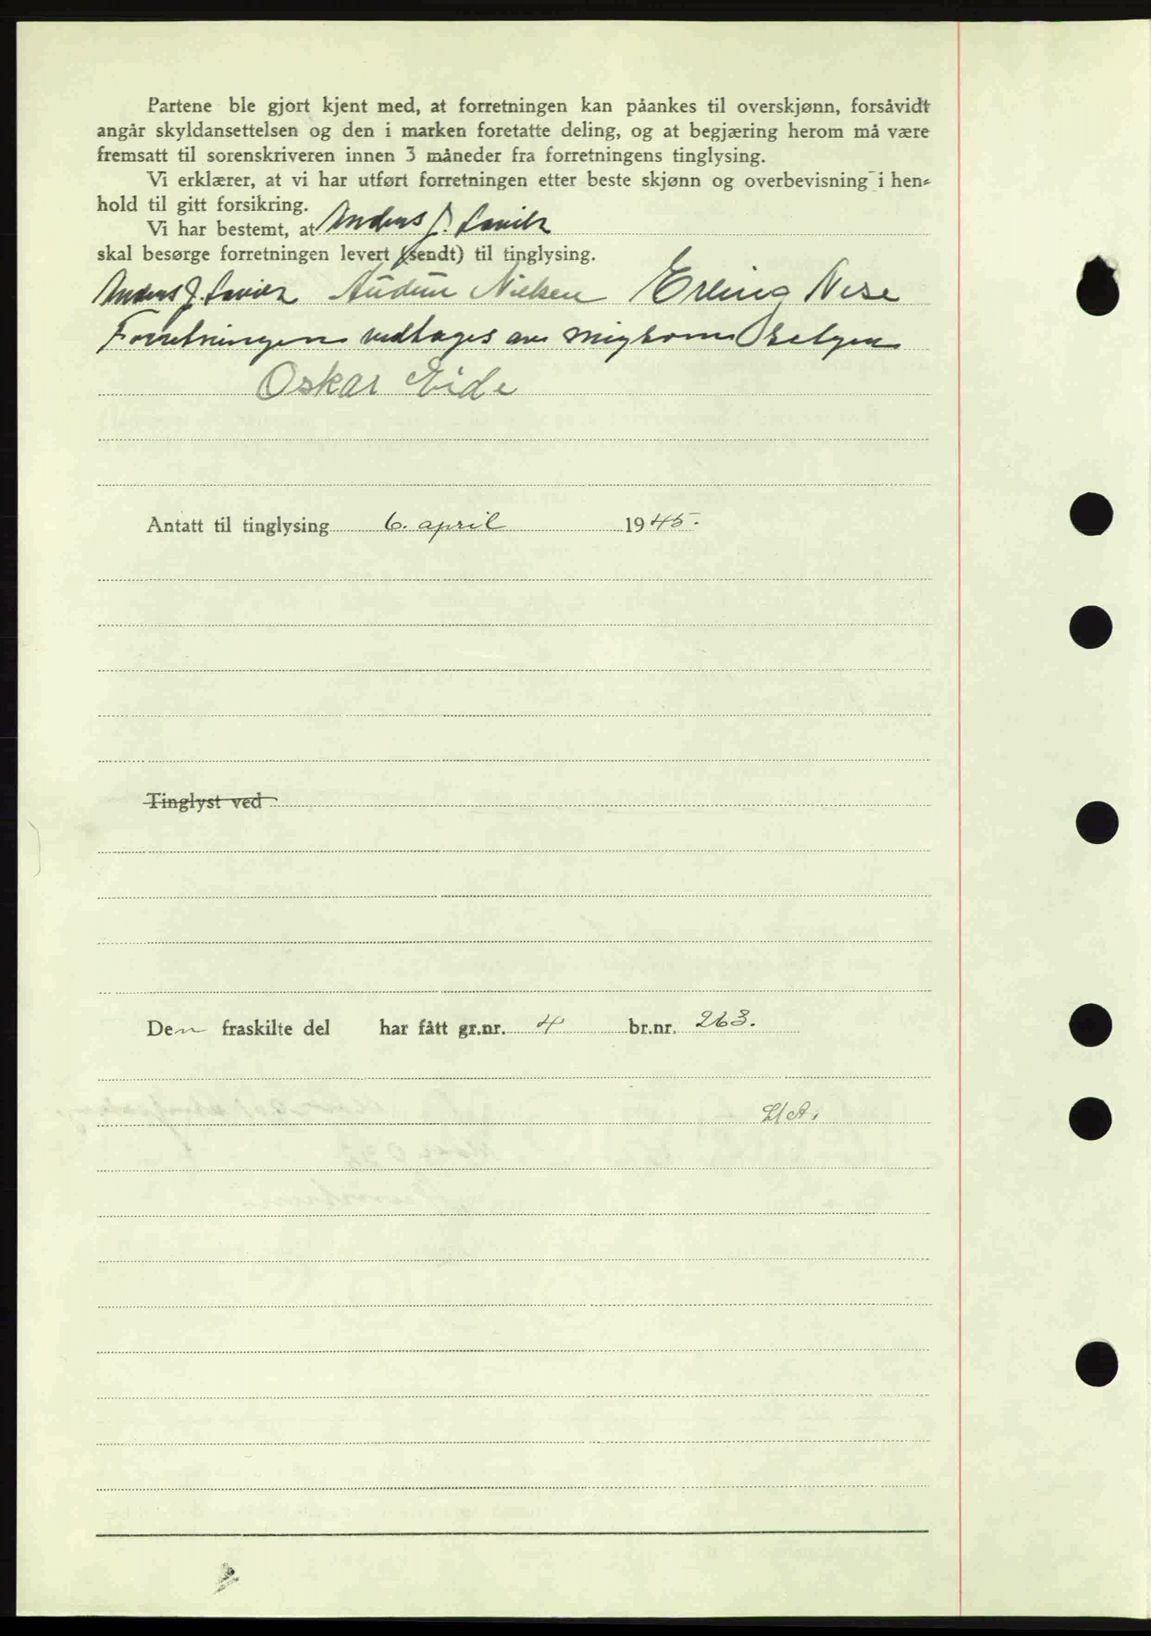 Partene ble gjort kjent med, at forretningen kan påankes til overskjønn, forsåvidt
angår skyldansettelsen og den i marken foretatte deling, og at begjæring herom må være
fremsatt til sorenskriveren innen 3 måneder fra forretningens tinglysing.
Vi erklærer, at vi har utført forretningen etter beste skjønn og overbevisning i hen-
hold til gitt forsikring.
Vi har bestemt, at Anders J.
skal besørge forretningen levert (sendt) til tinglysing.
Anders J. Audun Nielsen Erling Nese
Forretningen vedtages av mig som selger
Oskar Eide
Antatt til tinglysing 6. april 1945.
Tinglyst ved
Den fraskilte del har fått gr.nr. 4 br.nr. 263.